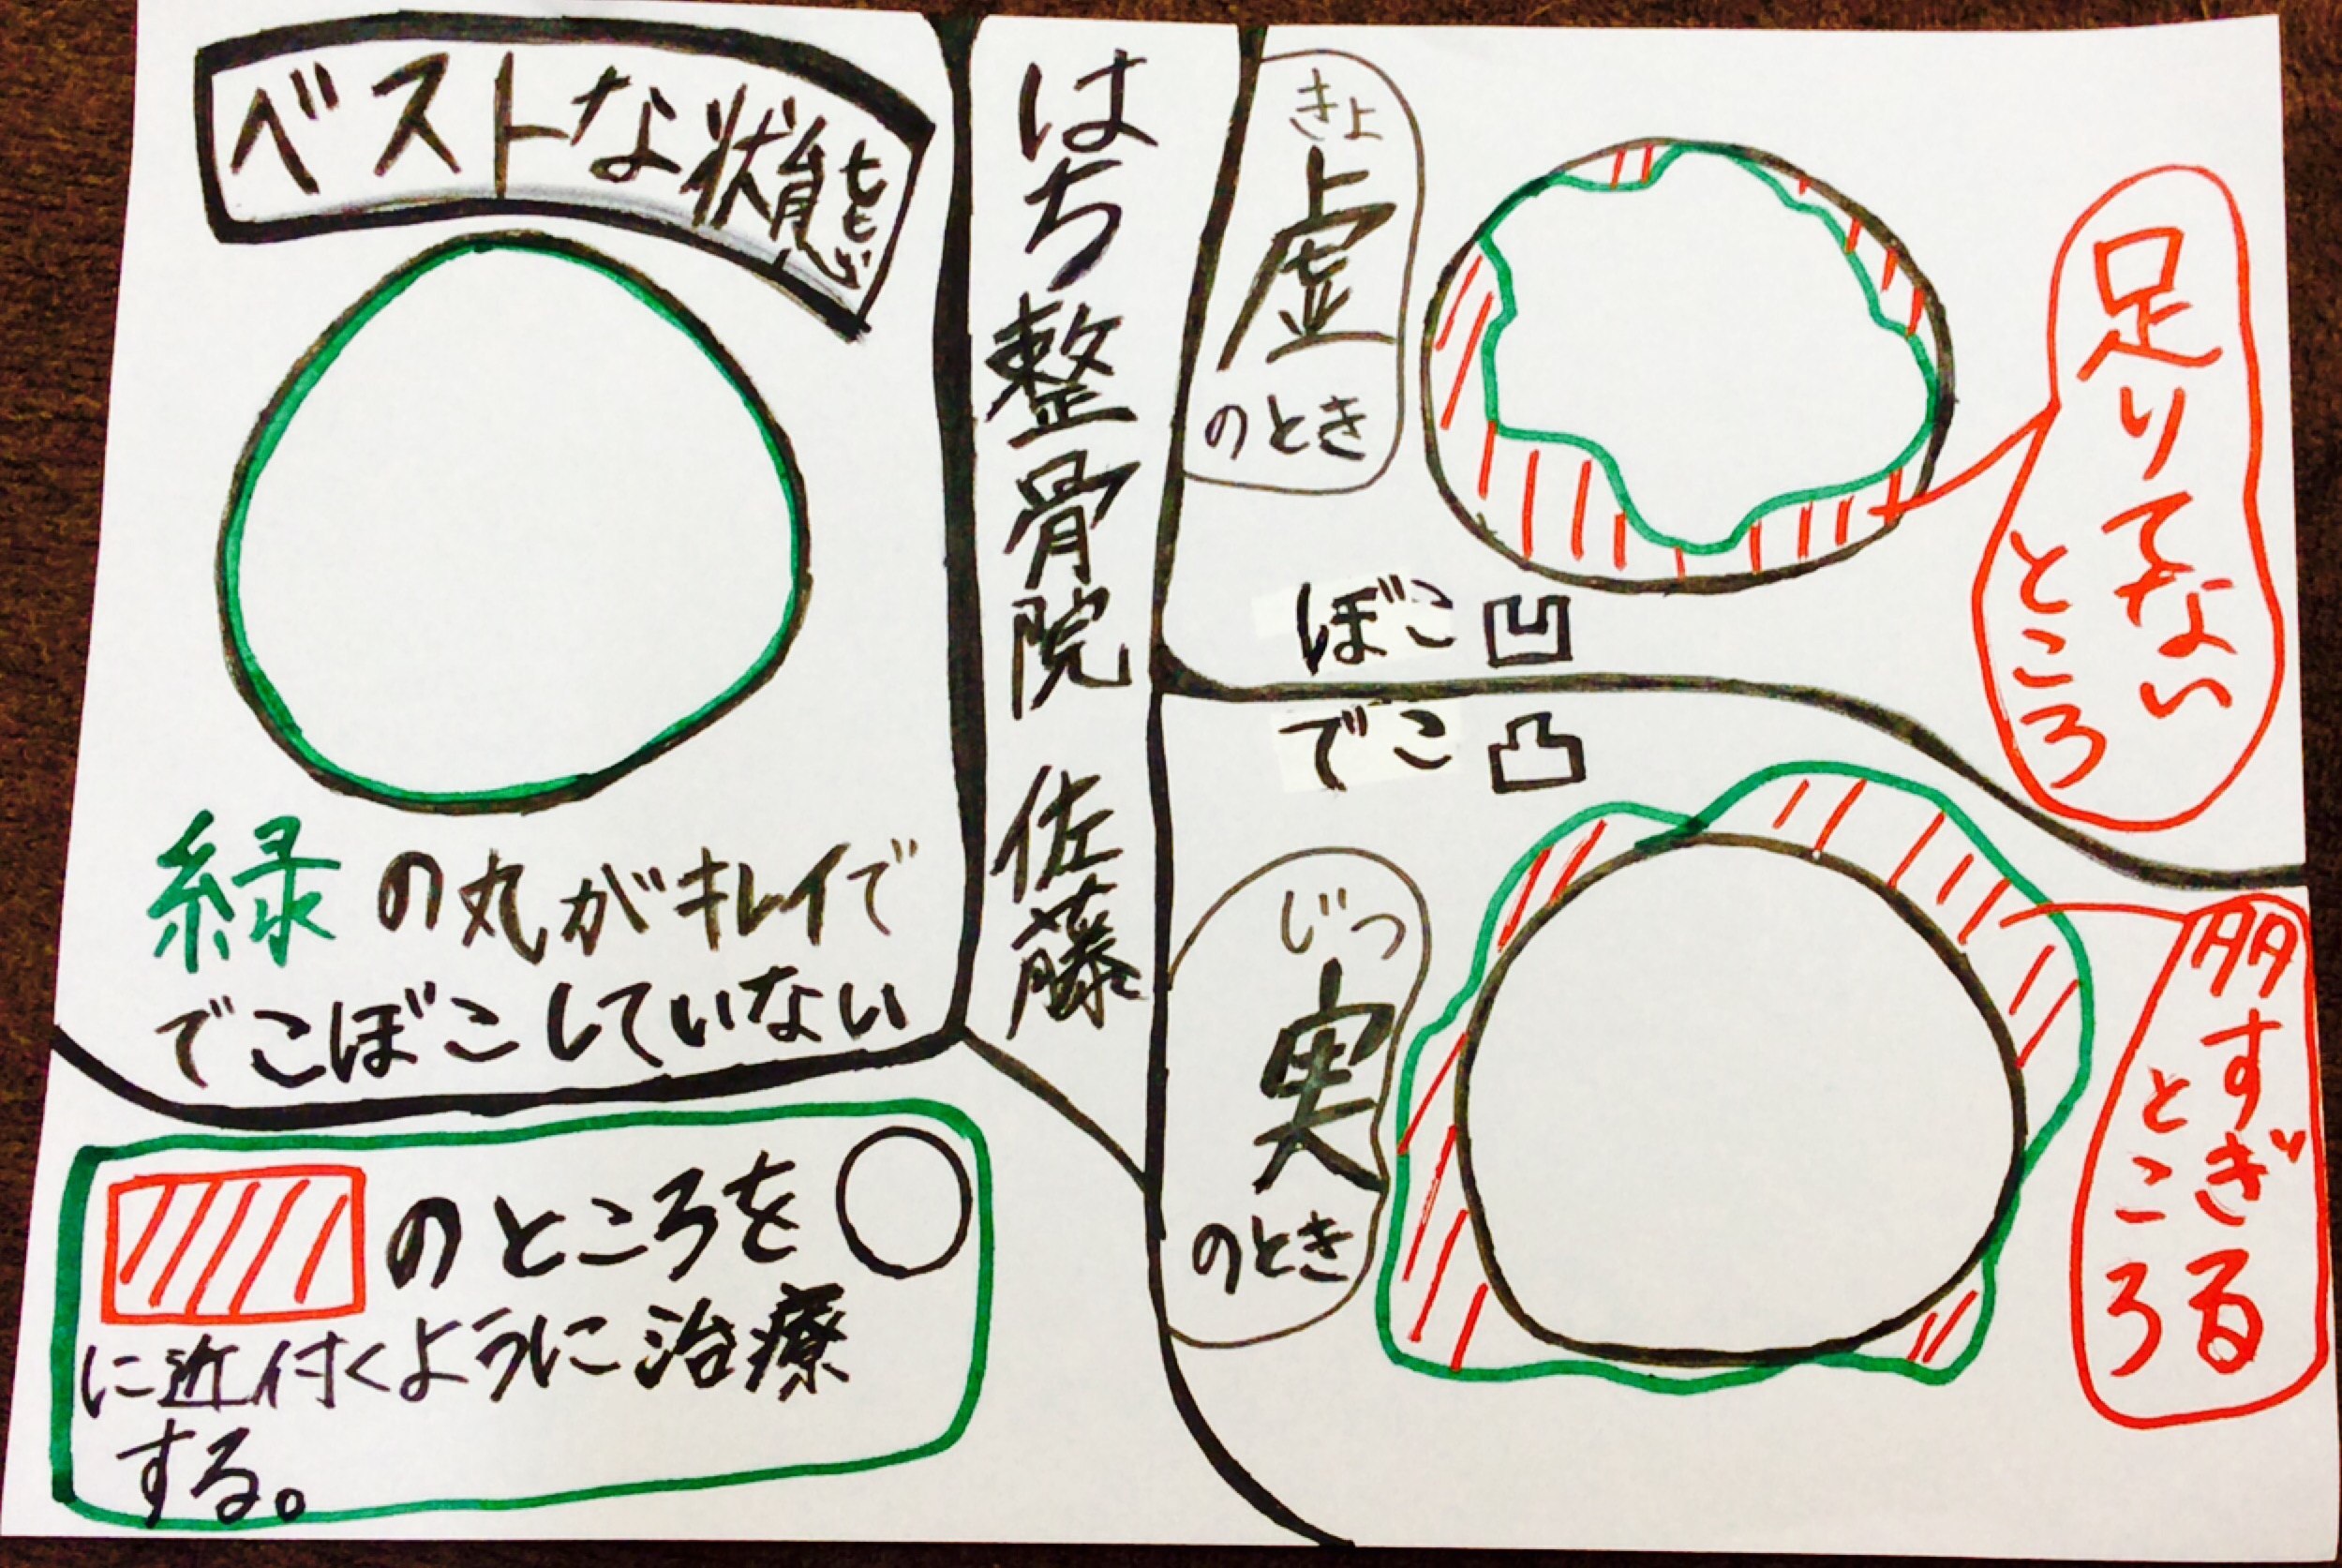 ベストな状態
緑の丸がキレイで
でこぼこしていない
のところを
に近付くように治療
する。
はち整骨院 佐藤
きょ
虚
のとき
足りてない
ところ
ぼこ凹
でこ凸
じつ
実
のとき
多すぎる
ところ